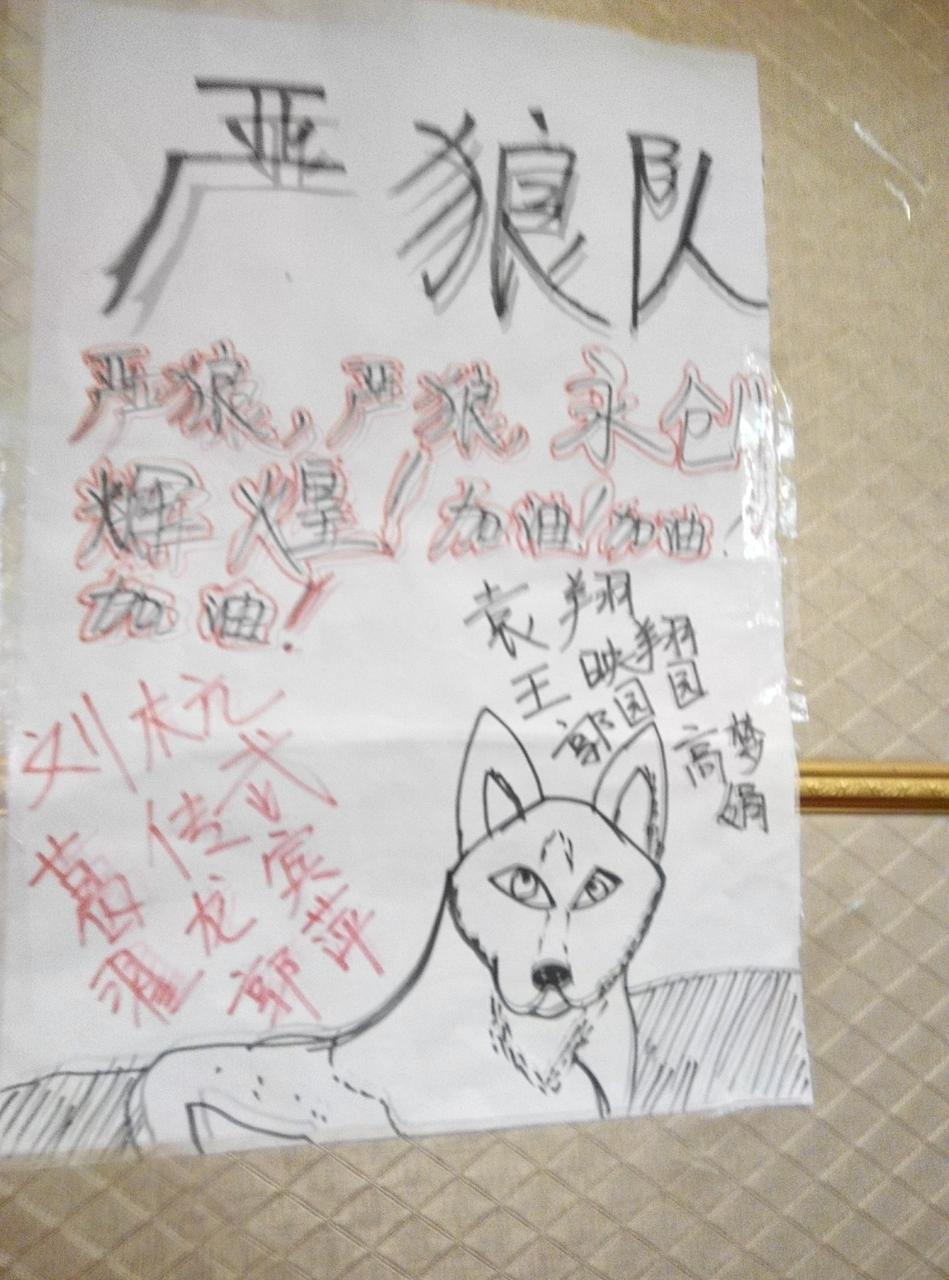 严狼队
严狼，严狼，永创
辉煌！加油！加油！
加油！
袁翔
王映翔
郭园园
高梦娟
刘杭
葛传武
龙宾
郭萍